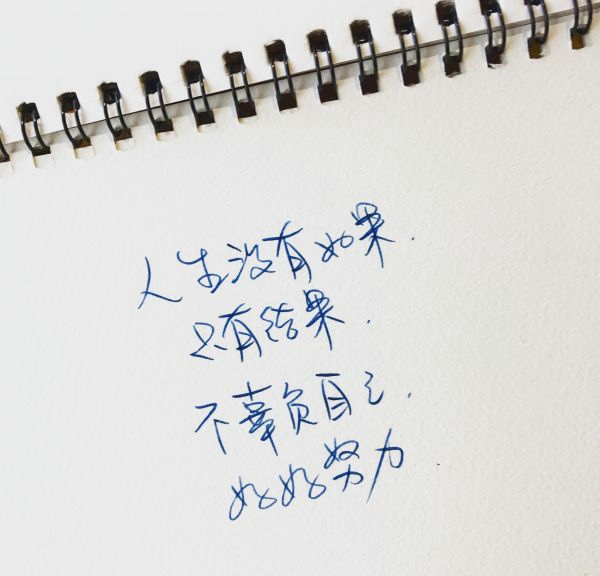 人生没有如果.
只有结果.
不辜负自己.
好好努力